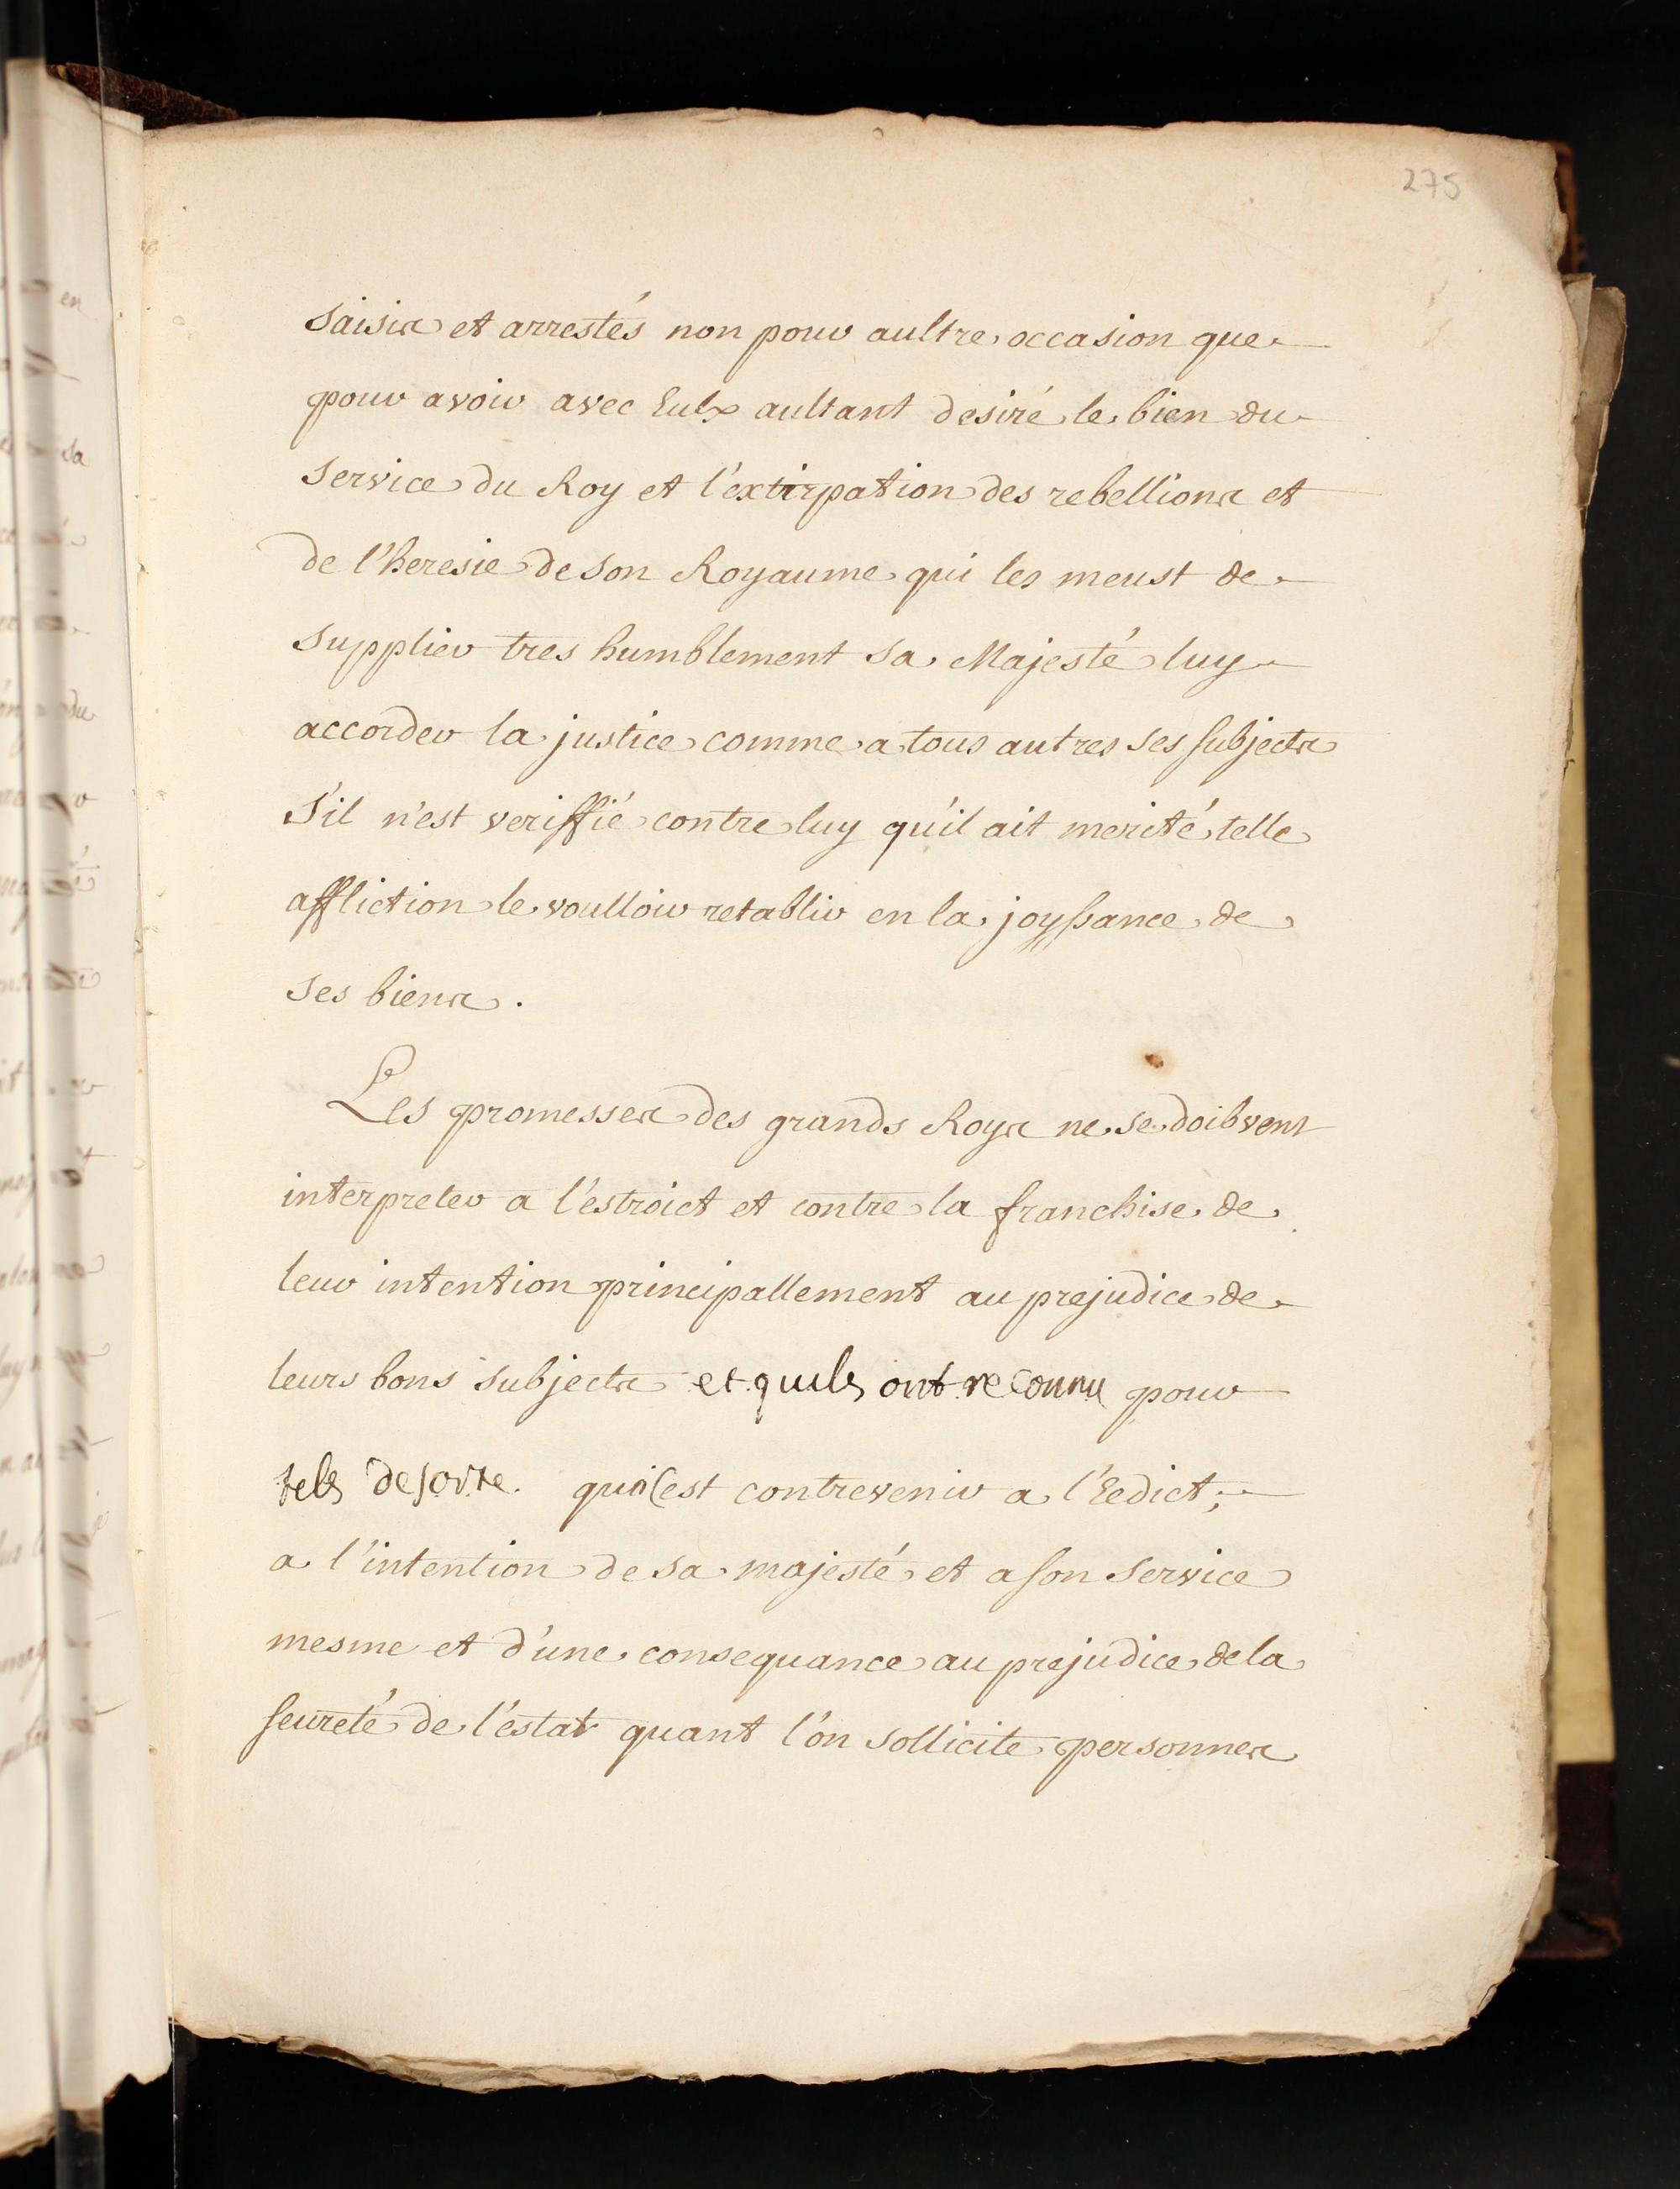 275
saisis et arrestés non pour aultre occasion que
pour avoir avec Eulx aultant desiré le bien du
service du Roy et l'extirpation des rebellions et
de l'heresie de son Royaume qui les meust de
supplier tres humblement sa Majesté luy
accorder la justice comme a tous autres ses subjects
s'il n'est veriffié contre luy qu'il ait merité telle
affliction le voulloir retablir en la joyssance de
ses biens.
Les promesses des grands Roys ne se doibvent
interpreter a l'estroict et contre la franchise de
leur intention principallement au prejudice de
leurs bons subjects et quils ont reconnu pour
tels de sorte. qui est contrevenir a l'Eedict;
a l'intention de sa majesté et a son service
mesme et d'une consequance au prejudice de la
seureté de l'estat quant l'on sollicite personnes